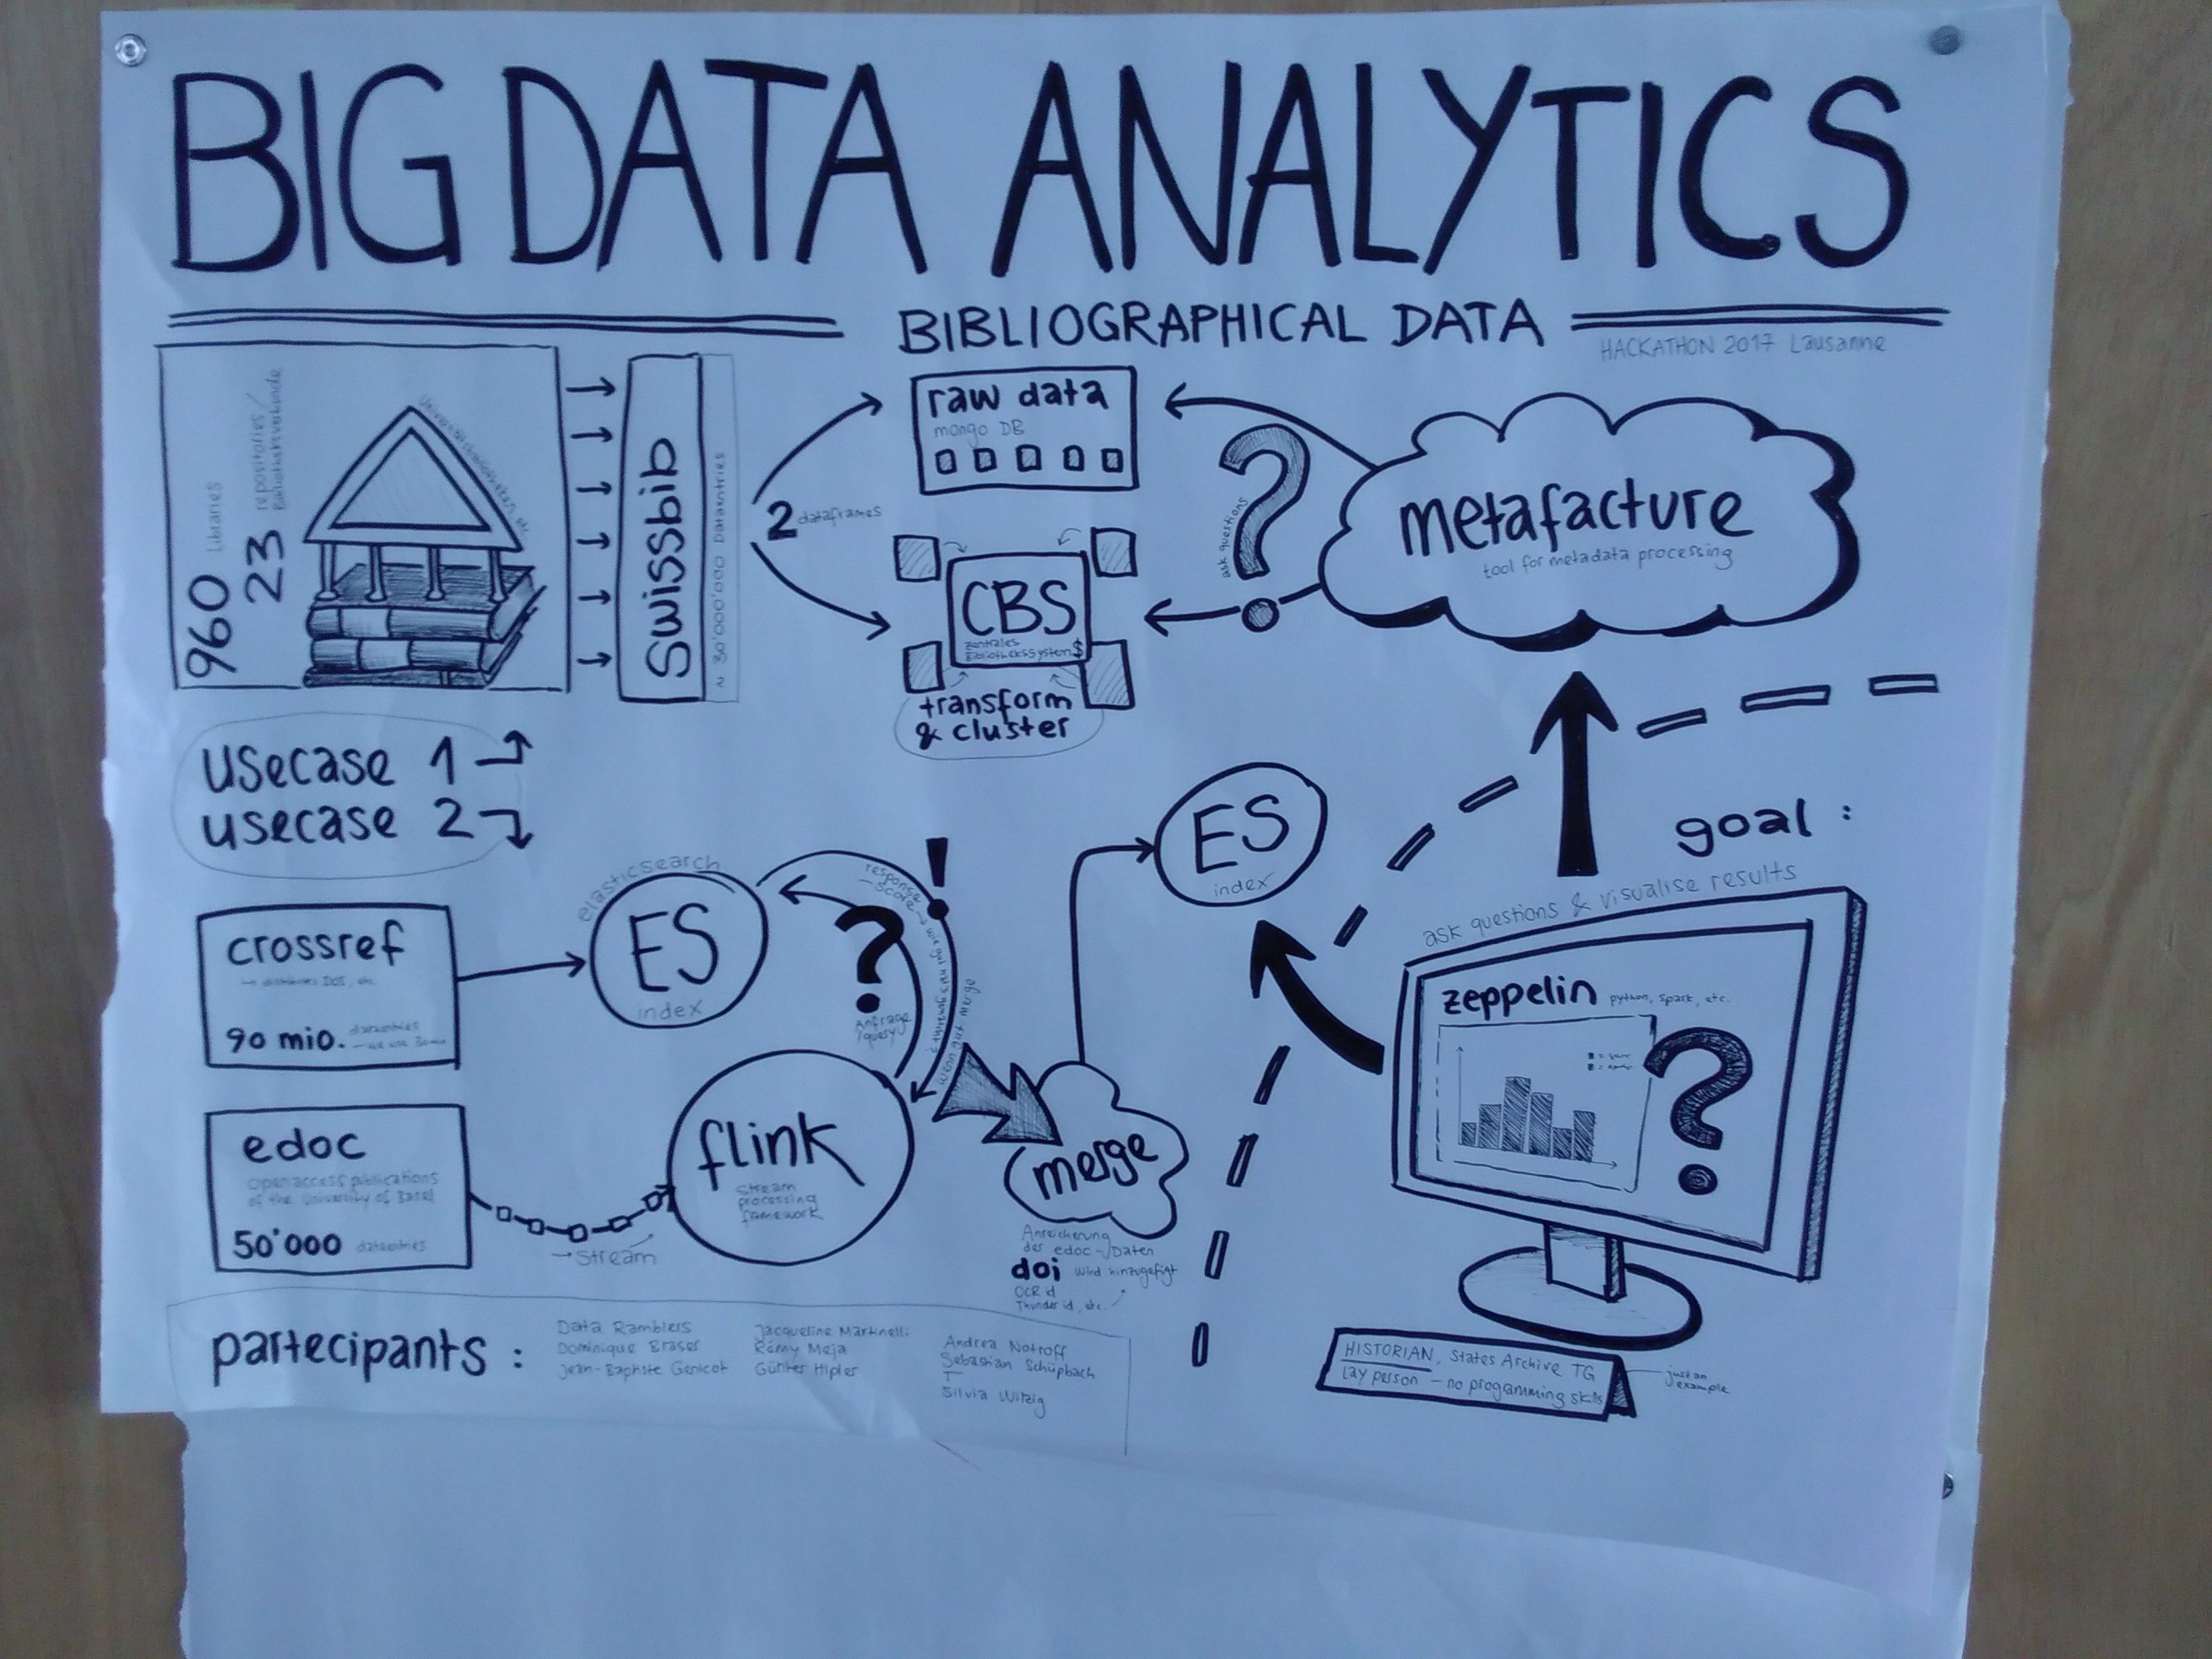 BIG DATA ANALYTICS
BIBLIOGRAPHICAL DATA
HACKATHON 2017 Lausanne
960 Libraries
23 repositories/
Bibliotheksverbünde
Universitätsbibliotheken, etc.
Swissbib
~ 30'000'000 Dataentries
2 dataframes
raw data
mongo DB
CBS
zentrales
Bibliothekssystem $
transform
& cluster
?
ask questions
metafacture
tool for metadata processing
usecase 1
usecase 2
crossref
90 mio. dataentries
elasticsearch
ES
index
response
score
!
?
Anfrage
/query
wenn gut: merge
edoc
open access publications
of the University of Basel
50'000 dataentries
→ stream
flink
stream
processing
framework
merge
Anreicherung
der edoc-Daten
doi wird hinzugefügt
OCR id
Thunder id, etc.
ES
index
goal:
ask questions & visualise results
zeppelin python, spark, etc.
?
HISTORIAN, States Archive TG
lay person – no programming skills
just an
example
partecipants:
Data Ramblers
Dominique Blaser
Jean-Baptiste Genicot
Jacqueline Martinelli
Rémy Meja
Günter Hipler
Andrea Notroff
Sebastian Schüpbach
T
Silvia Witzig